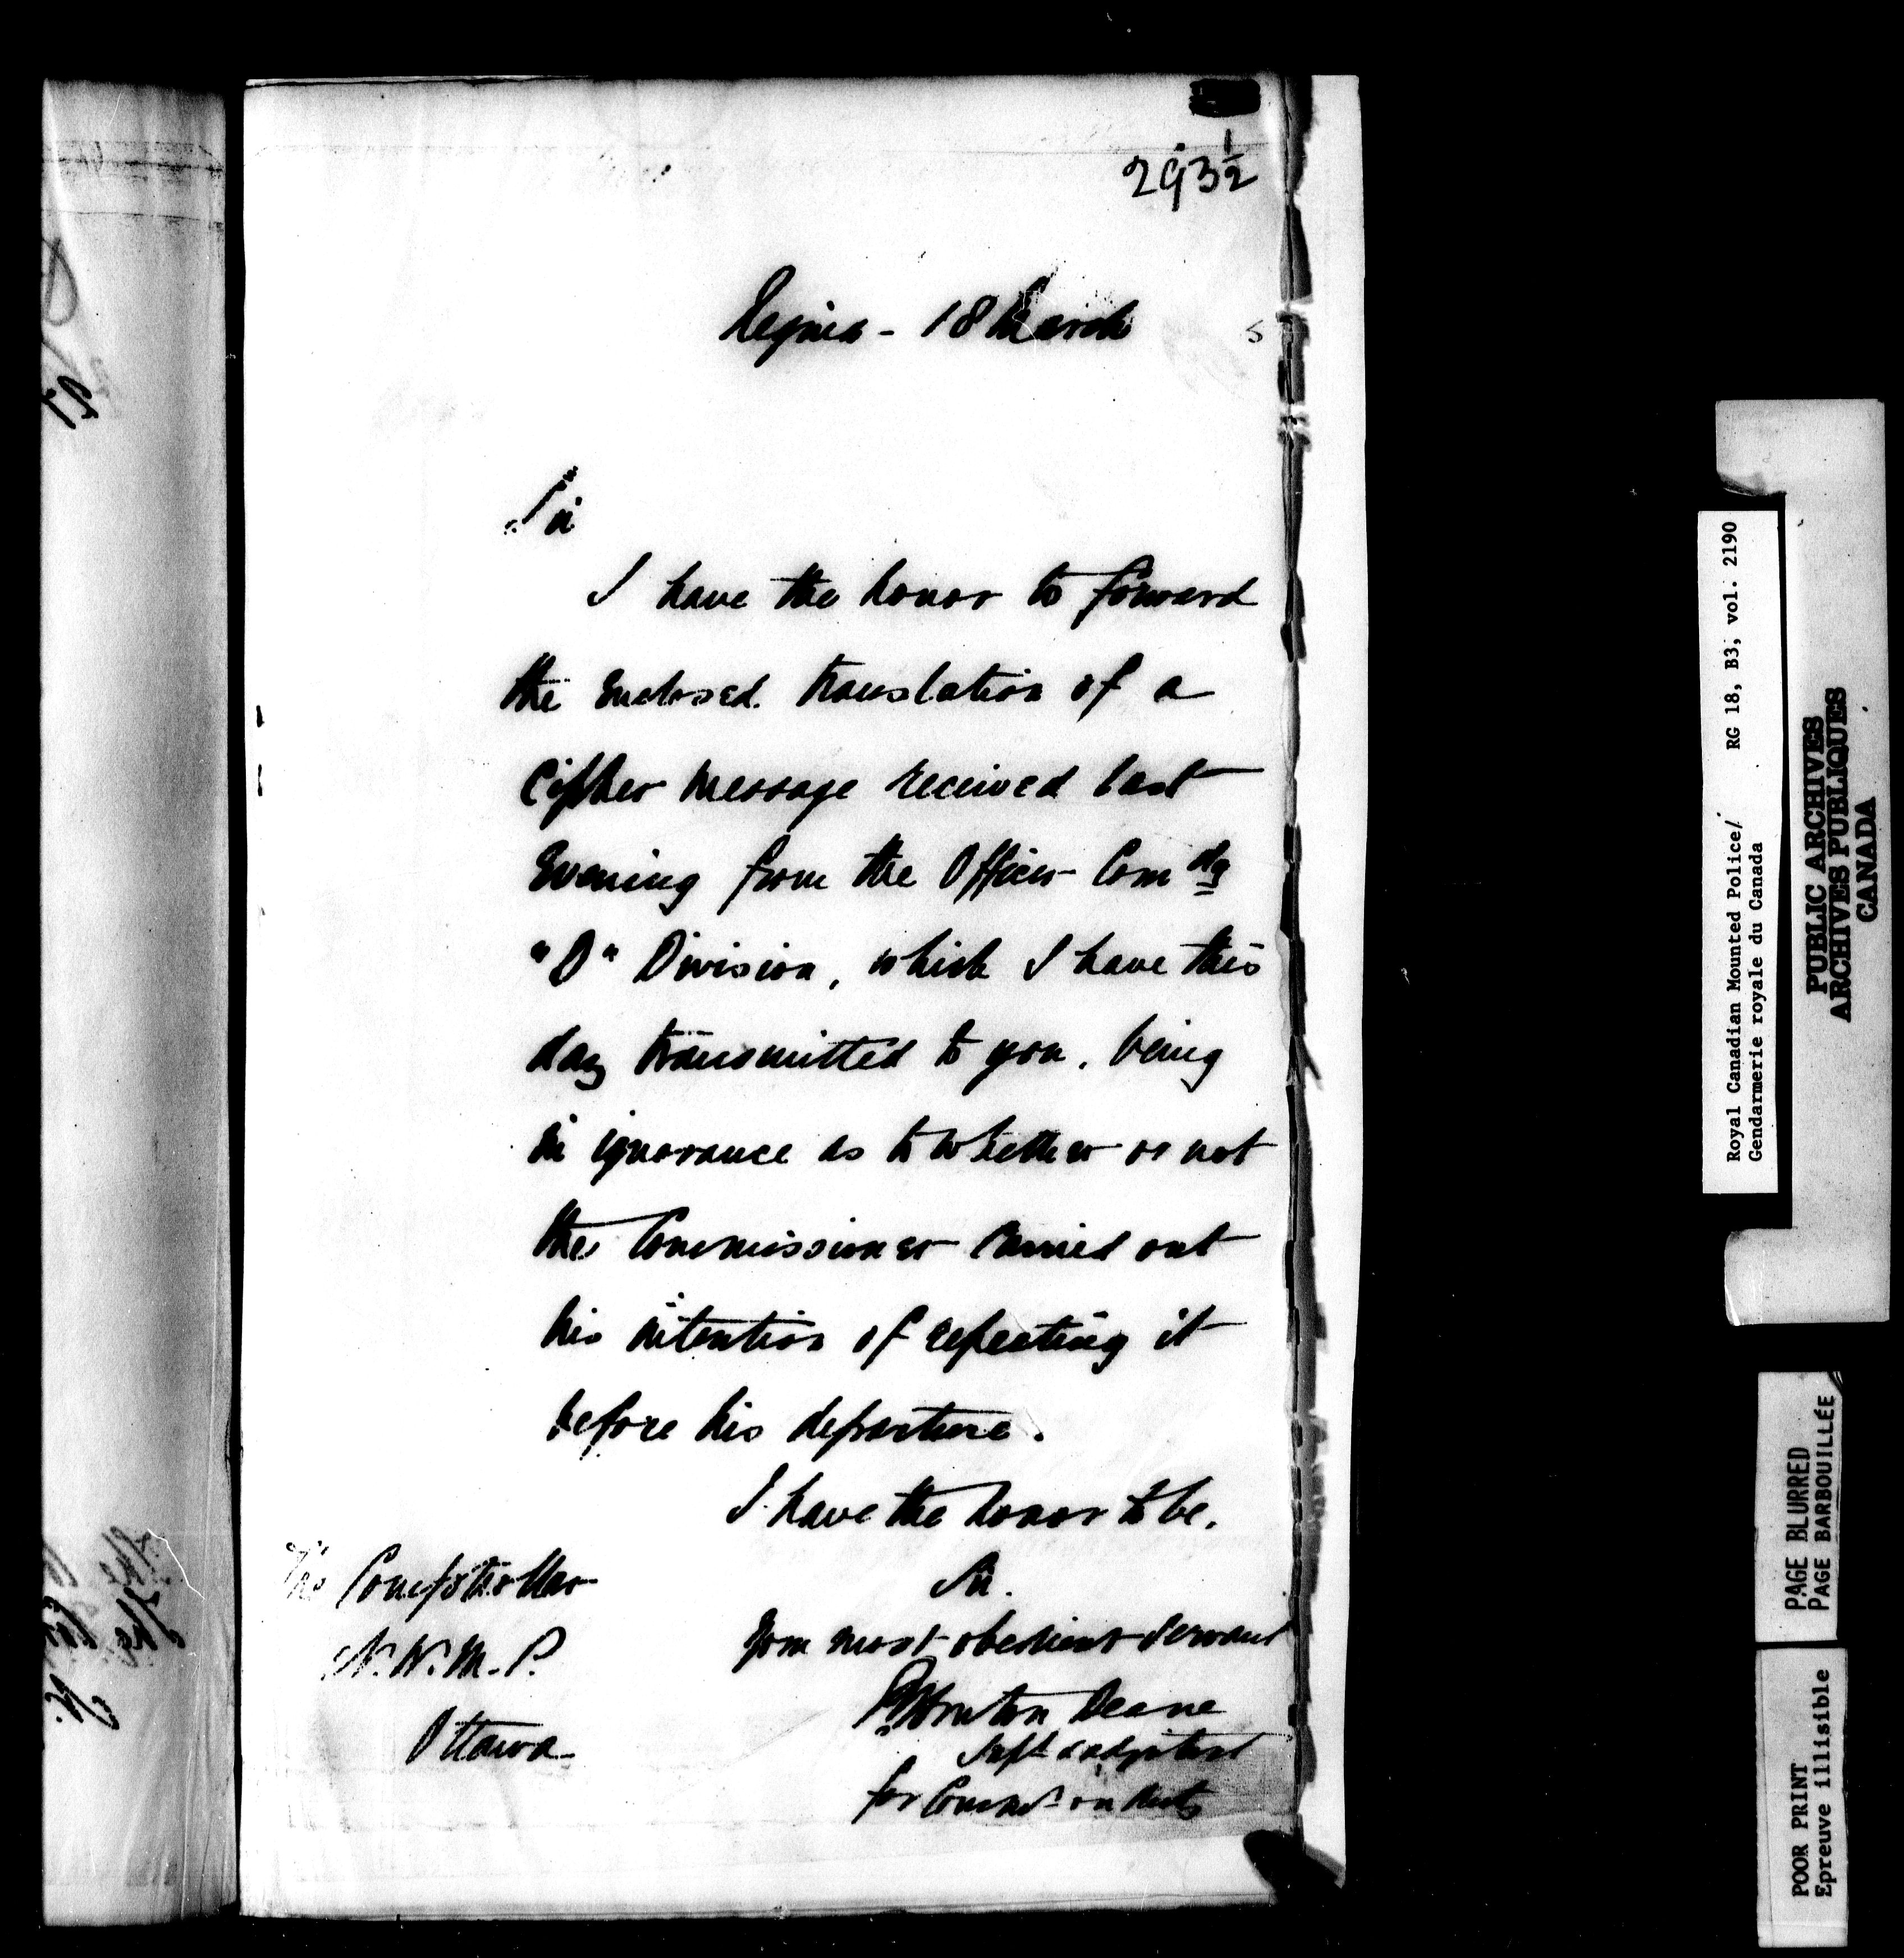 293½
Regina - 18 March 5
Sir
I have the honor to forward
the enclosed translation of a
cipher message received last
evening from the Officer Comdg
"D" Division, which I have this
day transmitted to you, being
in ignorance as to whether or not
the Commissioner carried out
his intention of repeating it
before his departure.
I have the honor to be,
Sir.
Your most obedient servant
Burton Deane
Supt & adjutant
for Commr on duty
The Comptroller
N.W.M.P.
Ottawa
Royal Canadian Mounted Police/ RG 18, B3, vol. 2190
Gendarmerie royale du Canada
PUBLIC ARCHIVES
ARCHIVES PUBLIQUES
CANADA
PAGE BLURRED
PAGE BARBOUILLÉE
POOR PRINT
Epreuve illisible